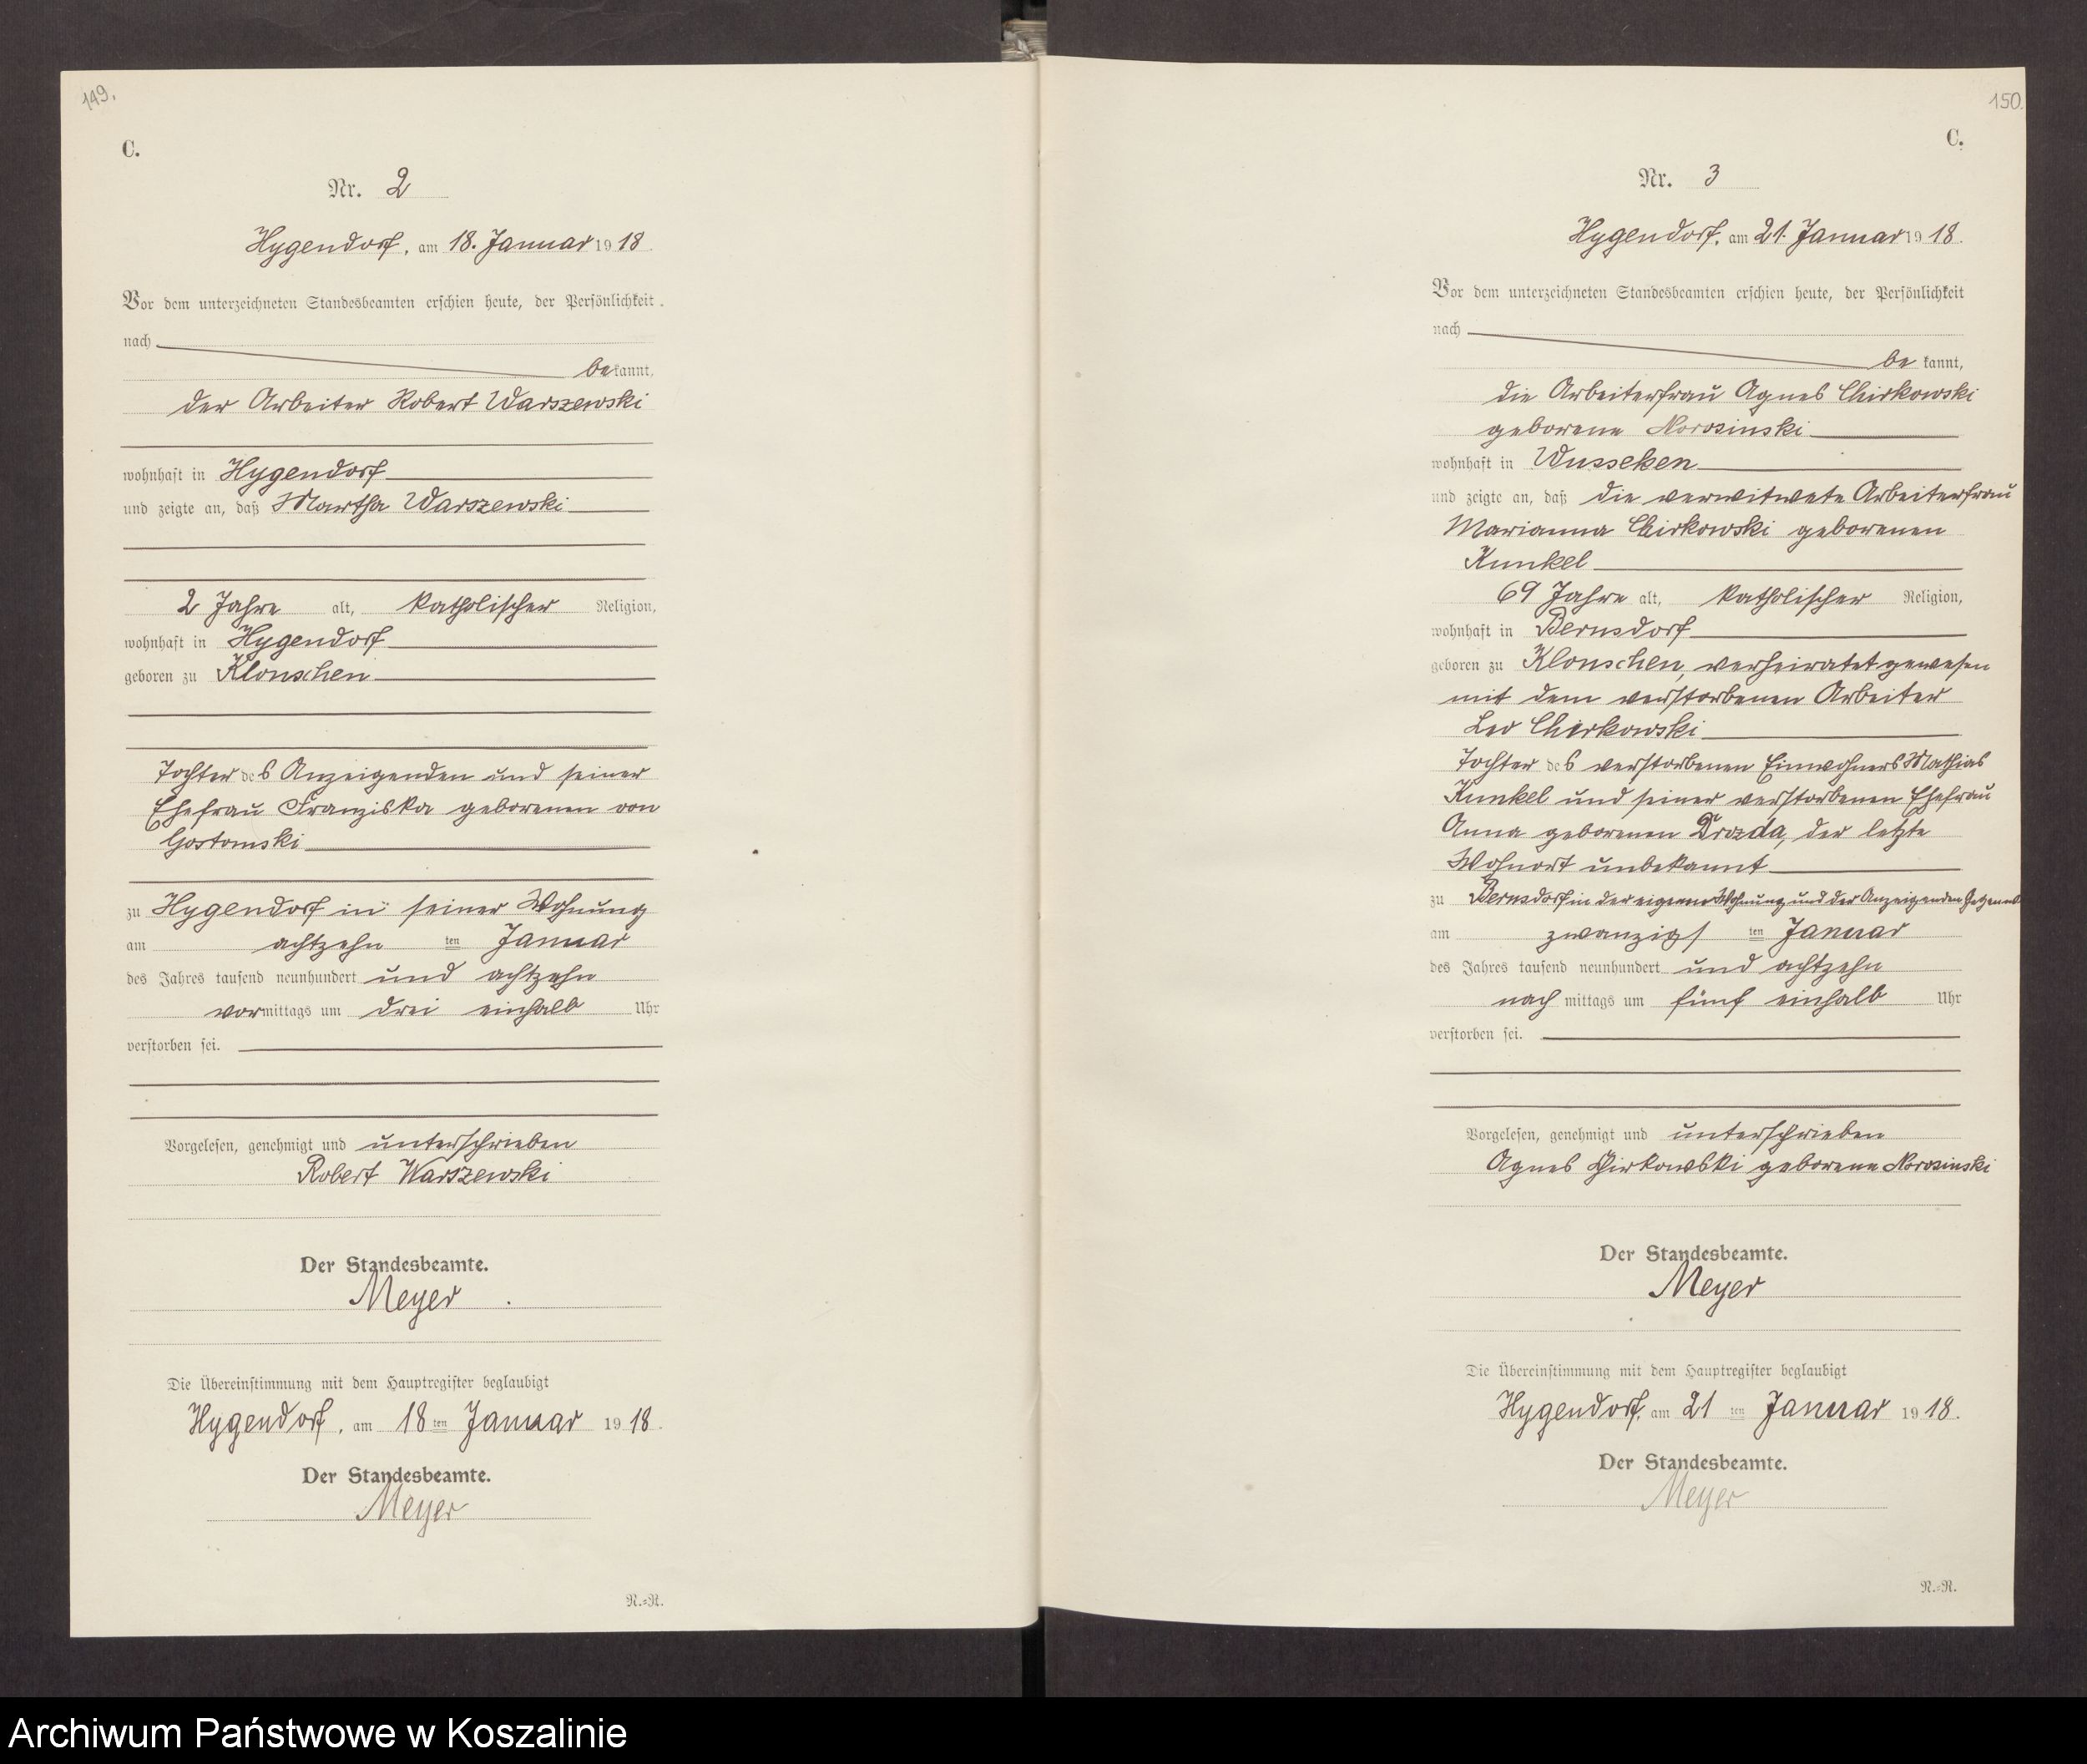 149.
C.
Nr. 2
Hygendorf, am 18. Januar 1918.
Vor dem unterzeichneten Standesbeamten erschien heute, der Persönlichkeit
nach
bekannt,
der Arbeiter Robert Warszewski
wohnhaft in Hygendorf
und zeigte an, daß Martha Warszewski
2 Jahre alt, katholischer Religion,
wohnhaft in Hygendorf
geboren zu Klonschen
Tochter des Anzeigenden und seiner
Ehefrau Franziska geborenen von
Gostomski
zu Hygendorf in seiner Wohnung
am achtzehn ten Januar
des Jahres tausend neunhundert und achtzehn
vormittags um drei einhalb Uhr
verstorben sei.
Vorgelesen, genehmigt und unterschrieben
Robert Warszewski
Der Standesbeamte.
Meyer
Die Übereinstimmung mit dem Hauptregister beglaubigt
Hygendorf, am 18ten Januar 1918.
Der Standesbeamte.
Meyer
N.=R.
150.
C.
Nr. 3
Hygendorf, am 21. Januar 1918.
Vor dem unterzeichneten Standesbeamten erschien heute, der Persönlichkeit
nach
be kannt,
die Arbeiterfrau Agnes Chirkowski
geborene Norosinski
wohnhaft in Wusseken
und zeigte an, daß die verwitwete Arbeiterfrau
Marianna Chirkowski geborenen
Kunkel
69 Jahre alt, katholischer Religion,
wohnhaft in Bernsdorf
geboren zu Klonschen, verheiratet gewesen
mit dem verstorbenen Arbeiter
Leo Chirkowski
Tochter des verstorbenen Einwohners Mathias
Kunkel und seiner verstorbenen Ehefrau
Anna geborenen Drozda, der letzte
Wohnort unbekannt
zu Bernsdorf in der eigenen Wohnung und der Anzeigenden Gegenw.
am zwanzigs ten Januar
des Jahres tausend neunhundert und achtzehn
nach mittags um fünf einhalb Uhr
verstorben sei.
Vorgelesen, genehmigt und unterschrieben
Agnes Chirkowski geborene Norosinski
Der Standesbeamte.
Meyer
Die Übereinstimmung mit dem Hauptregister beglaubigt
Hygendorf, am 21 ten Januar 1918.
Der Standesbeamte.
Meyer
N.=R.
Archiwum Państwowe w Koszalinie